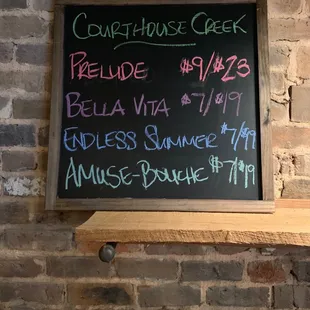 Courthouse Creek
Prelude $9/$23
Bella Vita $7/$19
Endless Summer $7/$19
Amuse-Bouche $7/$19